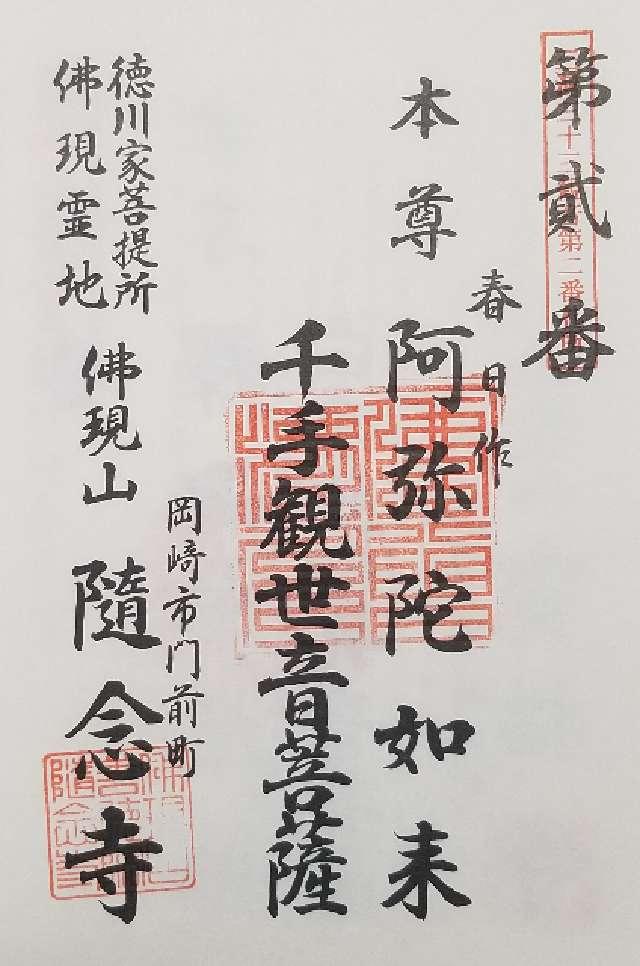 第貳番
本尊
春日作
阿弥陀如来
千手観世音菩薩
岡崎市門前町
徳川家菩提所
佛現霊地
佛現山
隨念寺